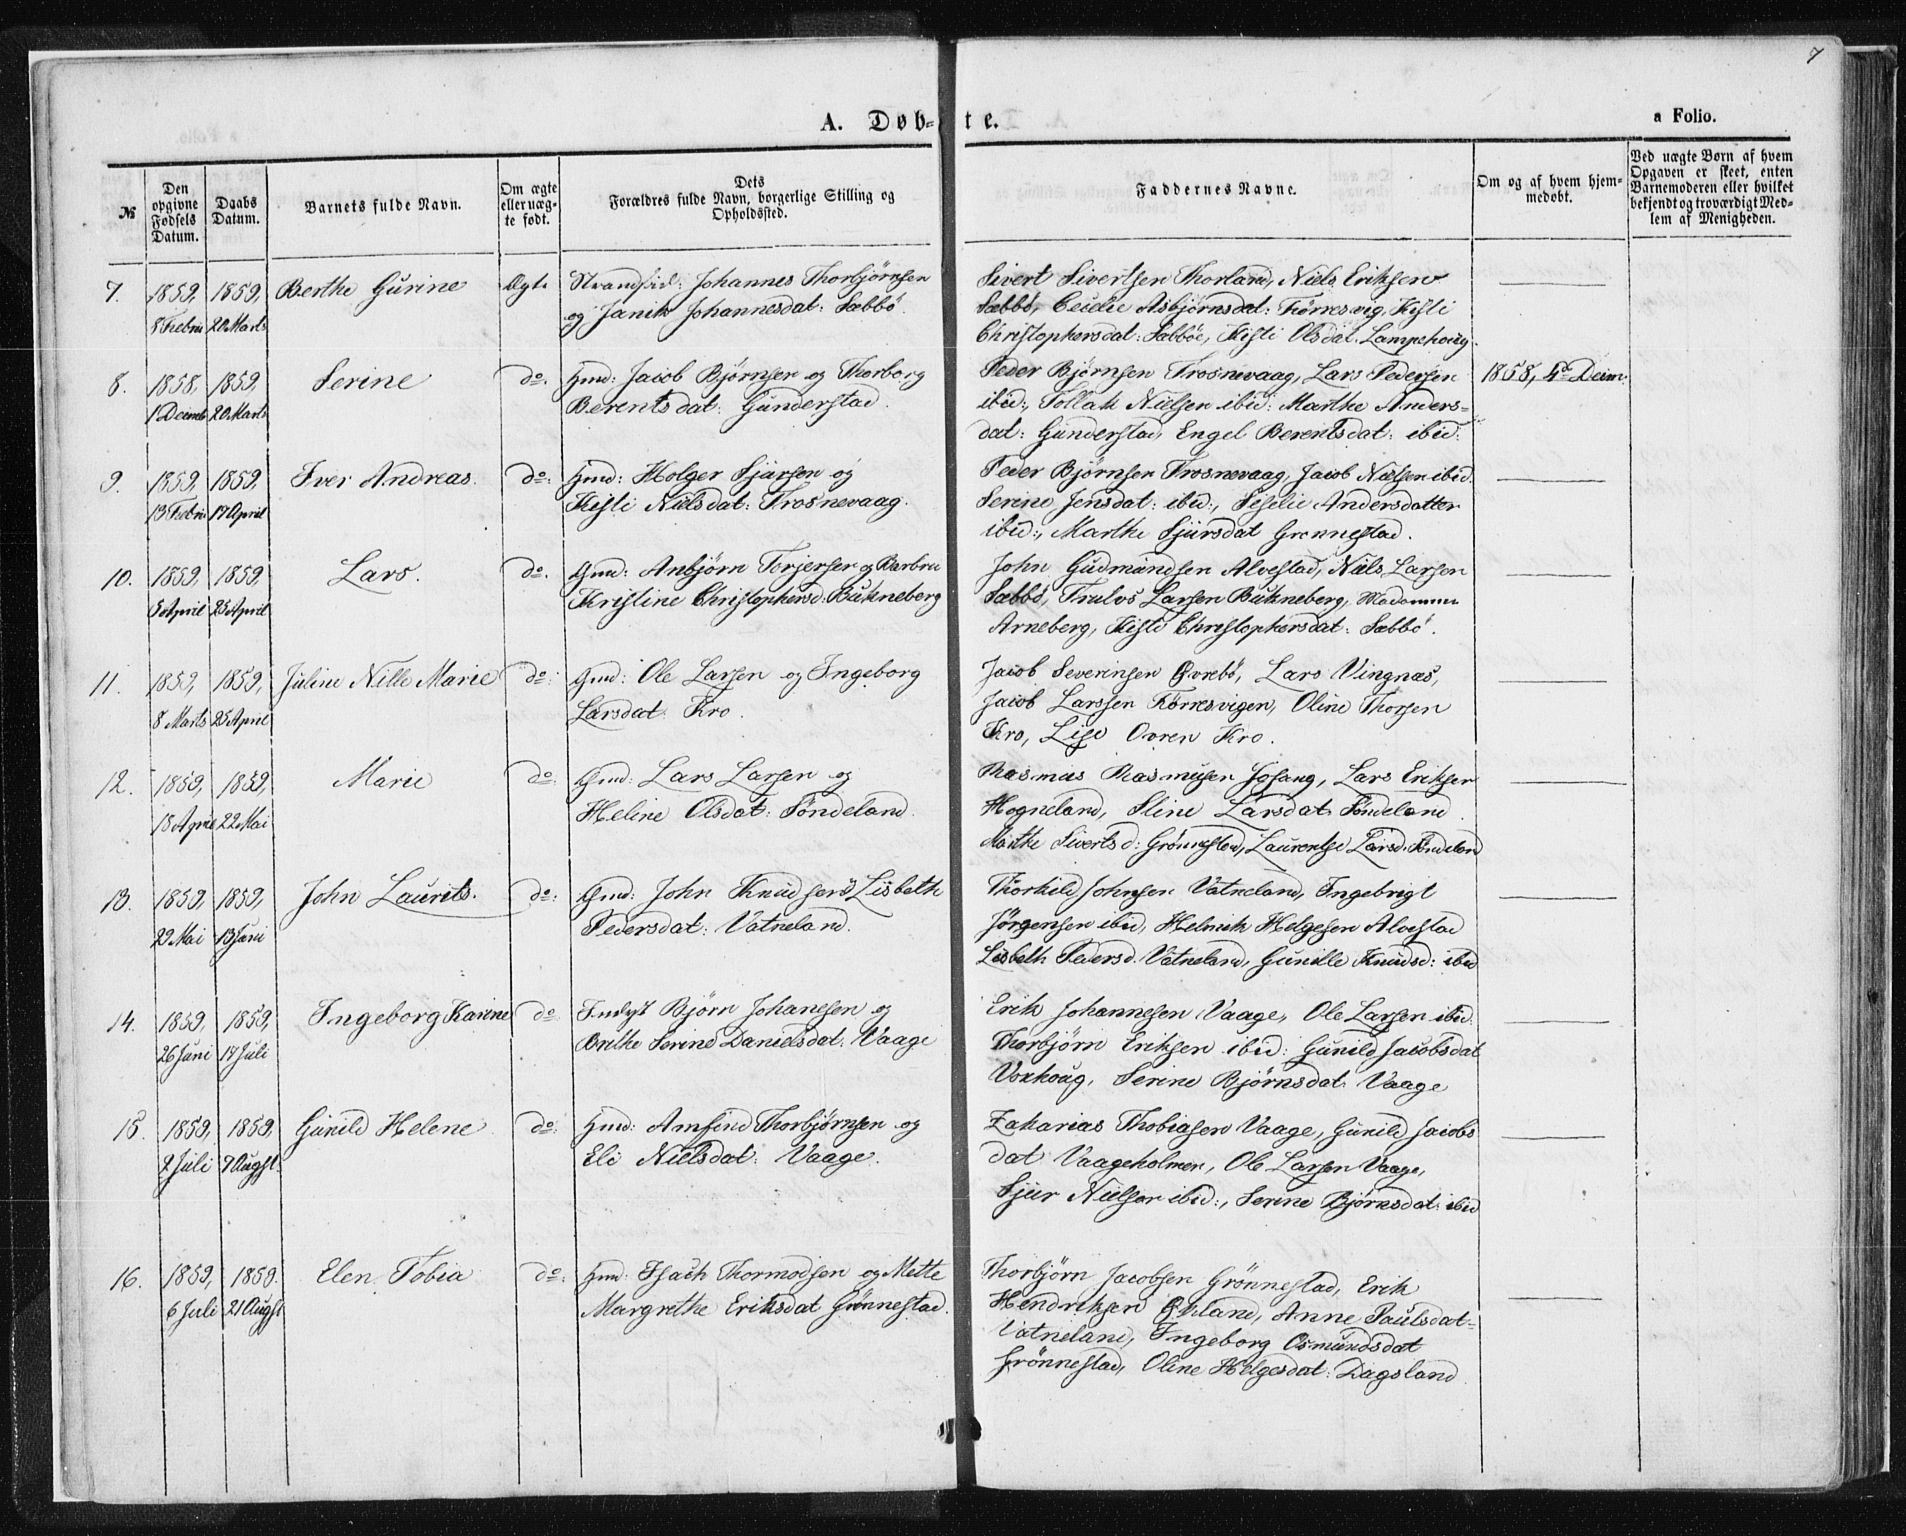 7
A. Døbte.
a Folio.
№
Den opgivne Fødsels Datum.
Daabs Datum.
Barnets fulde Navn.
Om ægte eller uægte født.
Dets Forældres fulde Navn, borgerlige Stilling og Opholdssted.
Faddernes Navne.
Om og af hvem hjemmedøbt.
Ved uægte Børn af hvem Opgaven er skeet, enten Barnemoderen eller hvilket bekjendt og troværdigt Medlem af Menigheden.
7. 1859, 1859, Berthe Gurine Ægte Strandsid: Johannes Thorbjørnsen
8 Febru 20 Marts og Janik Johannesdat: Sæbbö.
Sivert Sivertsen Thorland, Niels Eriksen
Sæbbö, Cecilie Asbjörnsdat: Körresvig, Kisti
Christophersdat: Sæbböe, Kisti Olsdat. Lampehoug.
8. 1858, 1859. Serine do. Hmd: Jacob Bjørnsen og Thorborg
1 Decemb 20 Marts Berentsdat: Gunderstad.
Peder Bjørnsen Frosnevaag, Lars Pedersen 1858, 4de Decm:
ibid:, Tollak Nielsen ibid: Marthe Anders-
dat: Gunderstad, Engel Berentsdat: ibid:
9. 1859, 1859. Iver Andreas. do: Hmd: Holger Sjursen og
13 Febru 17 April Kisti Nielsdat: Frosnevaag.
Peder Bjørnsen Frosnevaag, Jacob Nielsen ibid.
Serine Jensdat: ibid:, Siselie Andersdatter
ibid:, Marthe Sjursdat Grønnestad.
10. 1859. 1859. Lars. do. Gmd: Anbjørn Torjersen og Barbru
5 April 25 April Kristine Christophersd: Bukneberg
John Gudmundsen Alvestad, Niels Larsen
Sæbbö, Truls Larsen Bukneberg, Madammen
Arneberg, Kisti Christophersdat: Sæbbö.
11. 1859, 1859, Juline Nille Marie do: Gmd: Ole Larsen og Ingeborg
8 Marts 25 April Larsdat: Kro.
Jacob Severinsen Øvrebö, Lars Vingnæs,
Jacob Larssen Körresvigen, Oline Thorsen
Kro, Lise Ovren Kro.
12. 1859, 1859, Marie do: Gmd: Lars Larsen og
18 April 22 Mai Heline Olsdat: Söndeland.
Rasmus Rasmusen Josang, Lars Eriksen
Hogneland, Stine Larsdat Söndeland.
Marthe Sivertsd: Grønnestad, Laurentse Larsd. Söndeland
13. 1859. 1859, John Laurits. do: Gmd: John Knudsen & Lisbeth
29 Mai 13 Juni Pedersdat: Vatneland.
Thorkild Johnsen Vatneland, Ingebrigt
Jørgensen ibid, Helmik Helgesen Alvestad
Lisbeth Pedersd. Vatneland, Gunille Knudsd: ibid
14. 1859, 1859, Ingeborg Karine do: Indsyt Bjørn Johanesen og
26 Juni 17 Juli Brithe Serine Danielsdat: Vaage
Erik Johannesen Vaage, Ole Larsen ibid.
Thorbjörn Eriksen ibid: Gunild Jacobsdat
Voxhoug, Serine Bjørnsdat: Vaage
15. 1859, 1859, Gunild Helene do: Hmd: Amfind Thorbjørnsen og
2 Juli 7 Augst. Eli Nielsdat: Vaage.
Zakarias Thobiasen Vaage, Gunild Jacobs
dat Vaageholmen, Ole Larsen Vaage,
Sjur Nielsen ibid:, Serine Bjørnsdat: ibid
16. 1859, 1859. Elen Tobia do: Hmd: Isach Thormodsen og Mette
6 Juli 21 Augst Margrethe Eriksdat Grönnestad.
Thorbjörn Jacobsen Grönnestad, Erik
Hendriksen Økland, Anne Paulsdat-
Vatneland, Ingeborg Osmundsdat
Grönnestad, Oline Helgesdat: Dagsland.